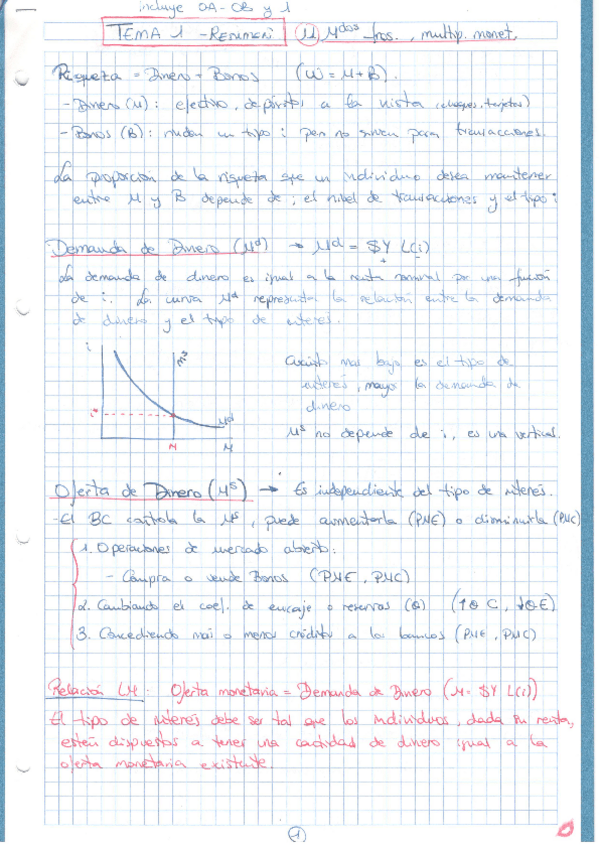 incluye OA-OB y 1
TEMA 1 - RESUMEN 11 Mdos fros., multip. monet.
Riqueza = Dinero + Bonos (W = M + B).
- Dinero (M): efectivo, depósitos a la vista (cheques, tarjetas)
- Bonos (B): rinden un tipo i pero no sirven para transacciones.
La proporción de la riqueza que un individuo desea mantener
entre M y B depende de; el nivel de transacciones y el tipo i
Demanda de Dinero (Md) → Md = $Y L(i)
+ -
La demanda de dinero es igual a la renta nominal por una función
de i. La curva Md representa la relación entre la demanda
de dinero y el tipo de interés.
i
Ms
Cuanto mas bajo es el tipo de
interés, mayor la demanda de
dinero
i*
Md
Ms no depende de i, es una vertical.
M
M
Oferta de Dinero (Ms) → Es independiente del tipo de interés.
- El BC controla la Ms, puede aumentarla (PME) o disminuirla (PMC)
1. Operaciones de mercado abierto:
- Compra o vende Bonos (PME, PMC)
2. Cambiando el coef. de encaje o reservas (θ) (↑θ C, ↓θ E)
3. Concediendo mas o menos crédito a los bancos (PME, PMC)
Relación LM: Oferta monetaria = Demanda de Dinero (M = $Y L(i))
El tipo de interés debe ser tal que los individuos, dada su renta,
estén dispuestos a tener una cantidad de dinero igual a la
oferta monetaria existente.
1
0